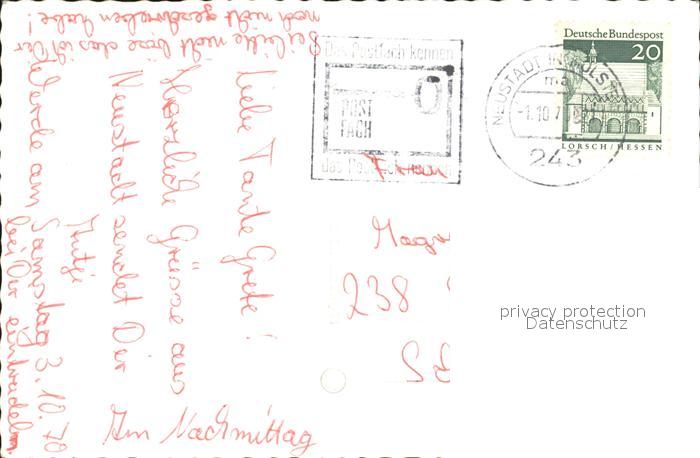 Liebe Tante Grete!
Herzliche Grüsse aus
Neustadt sendet Dir
Antje
Werde am Samstag 3.10.70
bei Dir eintrudeln.
Am Nachmittag
Sei bitte nicht böse das ich Dir
noch nicht geschrieben habe!
Das Postfach kennen
POST
FACH
das Postfach
Deutsche Bundespost
20
LORSCH/HESSEN
NEUSTADT IN HOLST
-1.10.7
243
Frau
Magr
238
privacy protection
Datenschutz